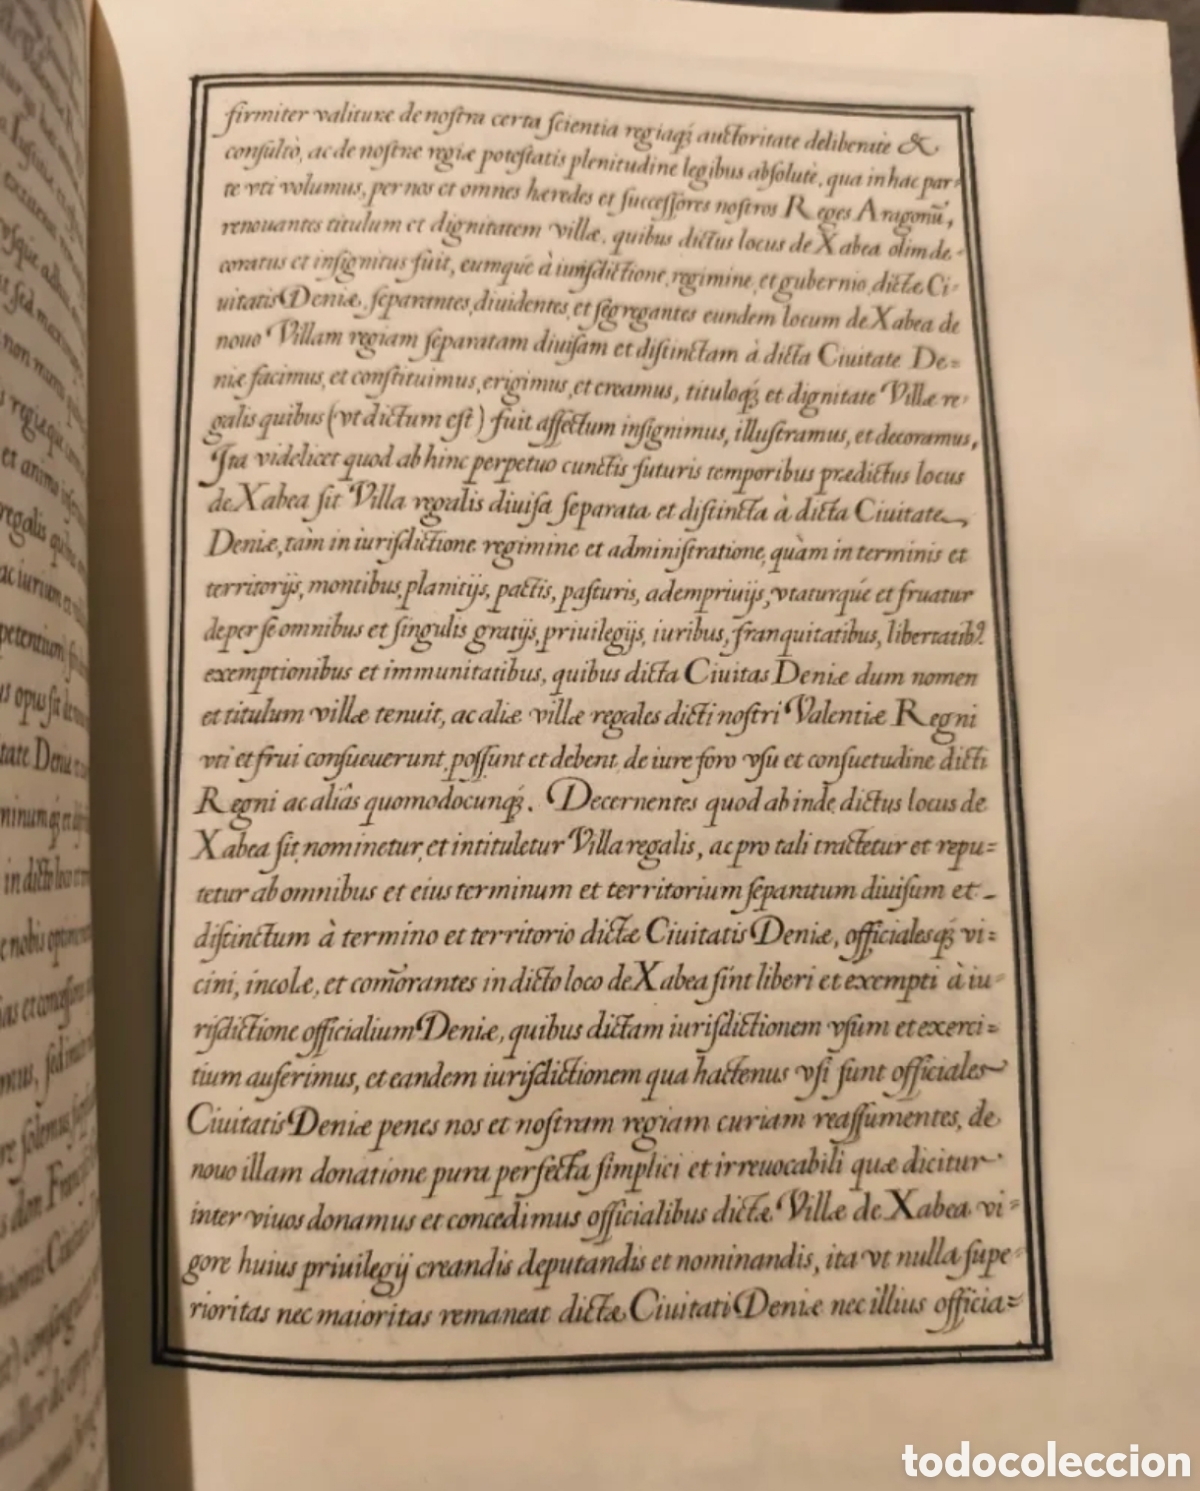 firmiter valiture de noſtra certa ſcientia regiaq́ꝫ auctoritate deliberate &
conſultò, ac de noſtræ regiæ poteſtatis plenitudine legibus abſolutè, qua in hac par=
te vti volumus, per nos et omnes hæredes et ſucceſſores noſtros Reges Aragonũ,
renouantes titulum et dignitatem villæ, quibus dictus locus de Xabea olim de=
coratus et inſignitus fuit, eumque à iuriſdictione, regimine, et gubernio, dictæ Ci=
uitatis Deniæ, ſeparantes, diuidentes, et ſegregantes eundem locum de Xabea de
nouo Villam regiam ſeparatam diuiſam et diſtinctam à dicta Ciuitate De=
niæ facimus, et conſtituimus, erigimus, et creamus, tituloq́ꝫ et dignitate Villæ re=
galis quibus (vt dictum eſt) fuit affectum inſignimus, illuſtramus, et decoramus,
Ita videlicet quod ab hinc perpetuo cunctis futuris temporibus prædictus locus
de Xabea ſit Villa regalis diuiſa ſeparata et diſtincta à dicta Ciuitate
Deniæ, tàm in iuriſdictione regimine et adminiſtratione, quàm in terminis et
territorijs, montibus, planitijs, pactis, paſturis, adempriuijs, vtaturqué et fruatur
de per ſe omnibus et ſingulis gratijs, priuilegijs, iuribus, franquitatibus, libertatibꝰ.
exemptionibus et immunitatibus, quibus dicta Ciuitas Deniæ dum nomen
et titulum villæ tenuit, ac aliæ villæ regales dicti noſtri Valentiæ Regni
vti et frui conſueuerunt, poſſunt et debent, de iure foro vſu et conſuetudine dicti
Regni ac aliâs quomodocunq́ꝫ. Decernentes quod ab inde, dictus locus de
Xabea ſit, nominetur, et intituletur Villa regalis, ac pro tali tractetur et repu=
tetur ab omnibus et eius terminum et territorium ſeparatum diuiſum et
diſtinctum à termino et territorio dictæ Ciuitatis Deniæ, officialesq́ꝫ vi=
cini, incolæ, et com̃orantes in dicto loco de Xabea ſint liberi et exempti à iu=
riſdictione officialium Deniæ, quibus dictam iuriſdictionem vſum et exerci=
tium auferimus, et eandem iuriſdictionem qua hactenus vſi ſunt officiales
Ciuitatis Deniæ penes nos et noſtram regiam curiam reaſſumentes, de
nouo illam donatione pura perfecta ſimplici et irreuocabili quæ dicitur
inter viuos donamus et concedimus officialibus dictæ Villæ de Xabea vi=
gore huius priuilegij creandis deputandis et nominandis, ita vt nulla ſupe=
rioritas nec maioritas remaneat dictæ Ciuitati Deniæ nec illius officia=
todocoleccion